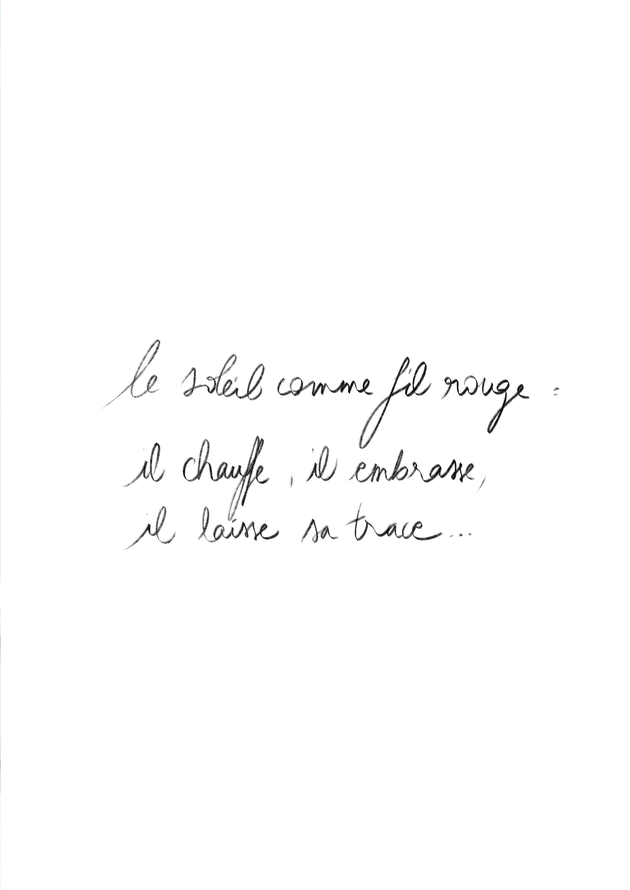 le soleil comme fil rouge :
il chauffe, il embrasse,
il laisse sa trace...